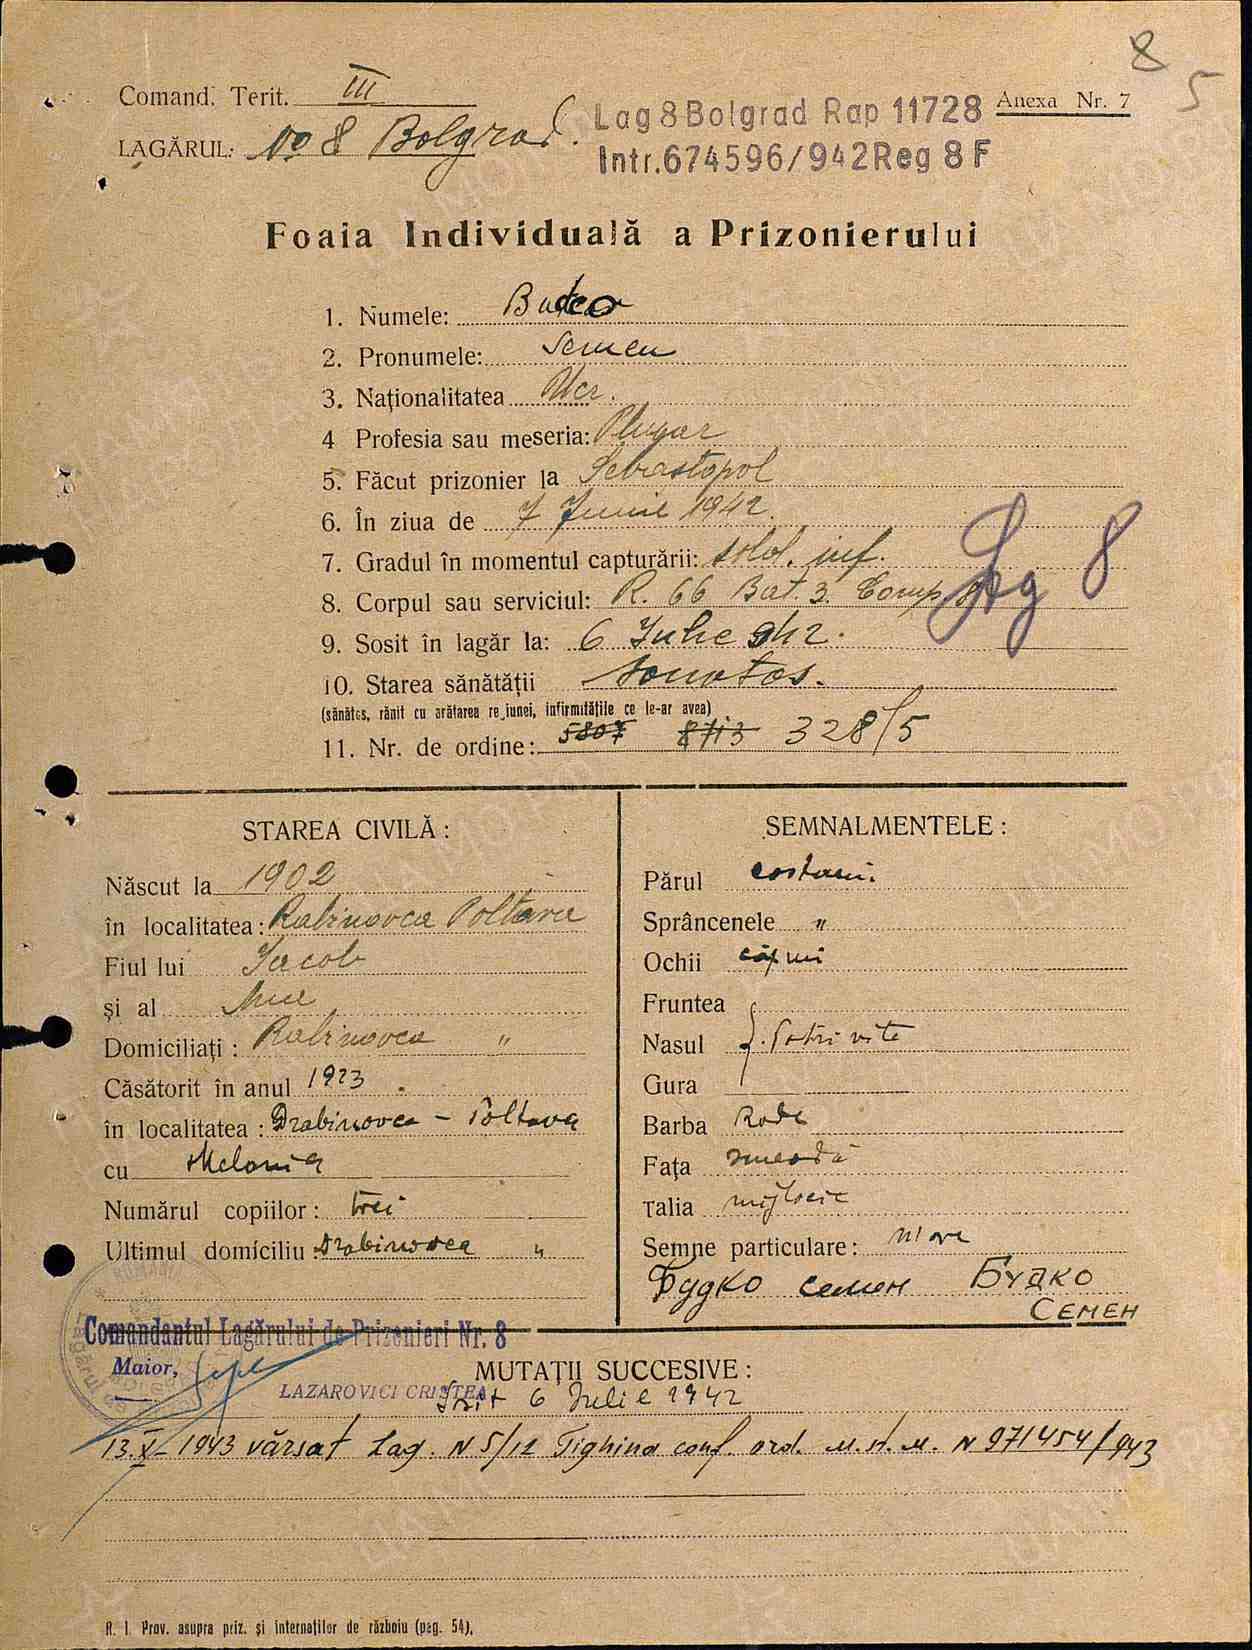 8
5
Comand. Terit. III
LAGĂRUL: No 8 Bolgrad.
Lag 8 Bolgrad Rap 11728
Intr.674596/942 Reg 8 F
Anexa Nr. 7
Foaia Individuală a Prizonierului
1. Numele: Butco
2. Pronumele: Semen
3. Naţionalitatea Ucr.
4 Profesia sau meseria: Plugar
5. Făcut prizonier la Sebastopol
6. În ziua de 7 Junie 1942.
7. Gradul în momentul capturării: sold. inf.
8. Corpul sau serviciul: R. 66 Bat. 3. Comp.
Lag 8
9. Sosit în lagăr la: 6 Iulie 942.
10. Starea sănătăţii sonatos.
(sănătos, rănit cu arătarea regiunei, infirmităţile ce le-ar avea)
11. Nr. de ordine: 5807 8713 328/5
STAREA CIVILĂ:
Născut la 1902
în localitatea: Rabinovca Poltava
Fiul lui Iacob
şi al
Domiciliaţi: Rabinovca "
Căsătorit în anul 1923.
în localitatea: Drabinovca - Poltava
cu Melania
Numărul copiilor: trei
Ultimul domiciliu: Drabinovca "
SEMNALMENTELE:
Părul castani.
Sprâncenele "
Ochii căprui
Fruntea
Nasul potrivite
Gura
Barba Rade
Faţa smeadă
Talia mijlocie
Semne particulare: n'are
Будко семен Будко
Семен
Comandantul Lagărului de Prizonieri Nr. 8
Maior,
LAZAROVICI CRISTEA
MUTAŢII SUCCESIVE:
6 Iulie 1942
13.X-1943 vărsat Lag. N 5/12 Tighina conf. ord. M.St.M. N 971454/943
R. I. Prov. asupra priz. şi internaţilor de războiu (pag. 54).